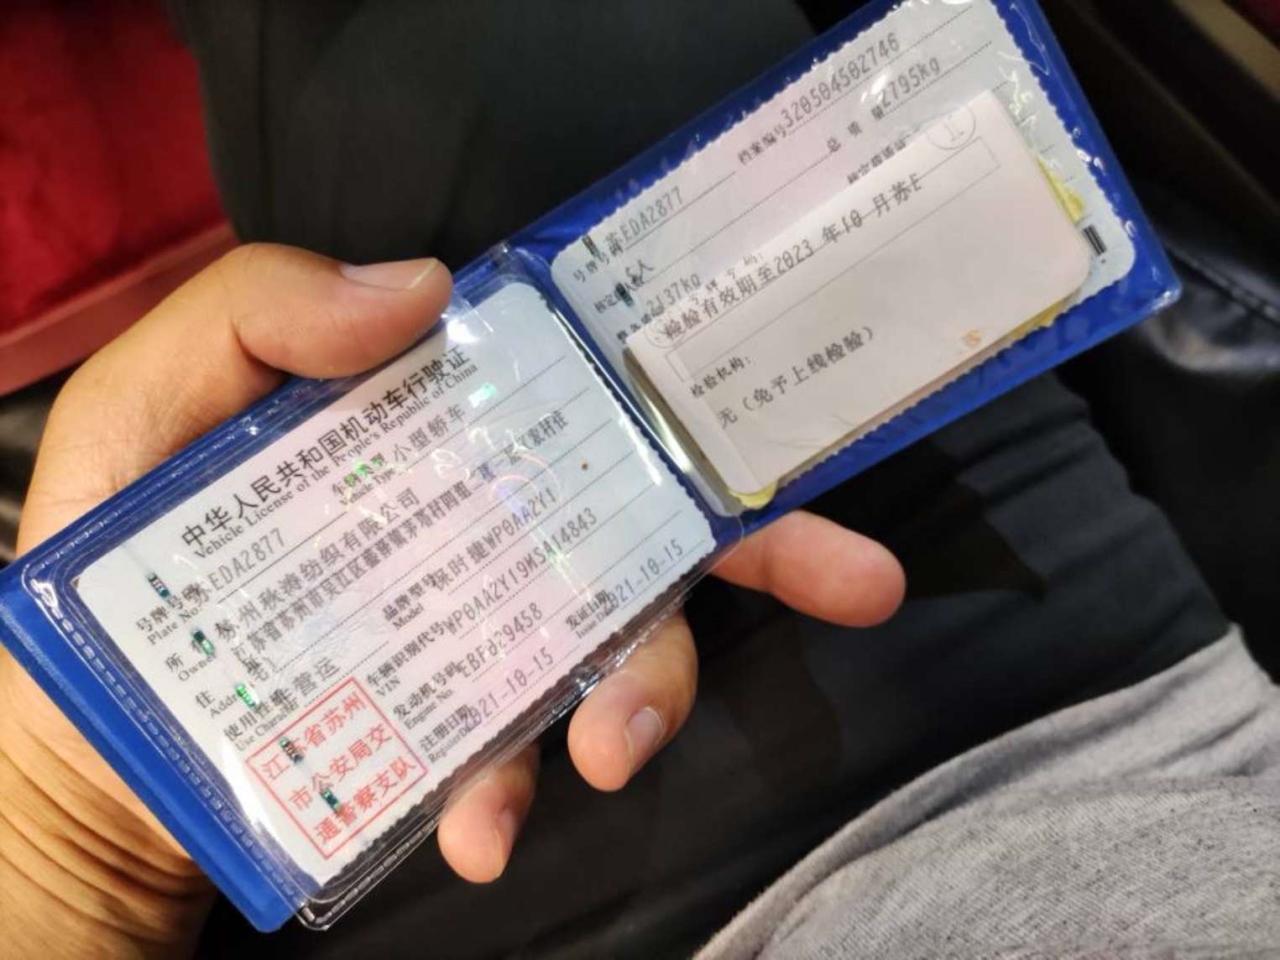 中华人民共和国机动车行驶证
Vehicle License of the People's Republic of China
号牌号码 苏EDA2877
Plate No.
车辆类型 小型轿车
Vehicle Type
所有人 苏州秋涛纺织有限公司
Owner
住址 江苏省苏州市吴江区
Address
使用性质 非营运
Use Character
品牌型号 保时捷WP0AA2Y1
Model
车辆识别代号 WP0AA2Y19MSA14843
VIN
发动机号码 EBF029458
Engine No.
注册日期 2021-10-15
Register Date
发证日期 2021-10-15
Issue Date
江苏省苏州
市公安局交
通警察支队
号牌号码 苏EDA2877
档案编号 320504502746
人
总质量 2795kg
2137kg
检验有效期至2023 年10 月苏E
检验机构：
无（免予上线检验）